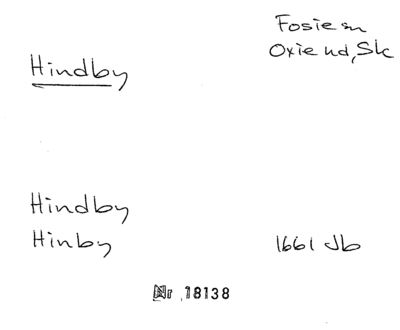 Fosie sn
Oxie hd, Sk
Hindby
Hindby
Hinby 1661 Jb
Nr 18138